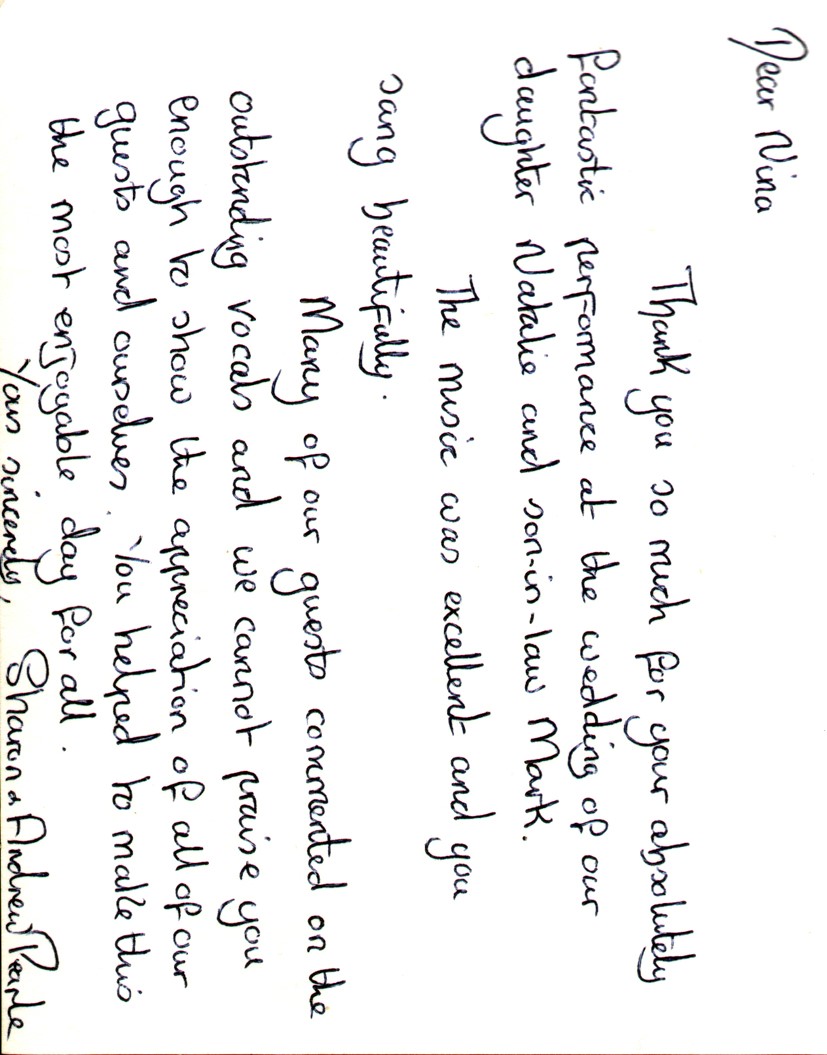 Dear Nina
Thank you so much for your absolutely
fantastic performance at the wedding of our
daughter Natalie and son-in-law Mark.
The music was excellent and you
sang beautifully.
Many of our guests commented on the
outstanding vocals and we cannot praise you
enough to show the appreciation of all of our
guests and ourselves. You helped to make this
the most enjoyable day for all.
Yours sincerely, Sharon & Andrew Pearle